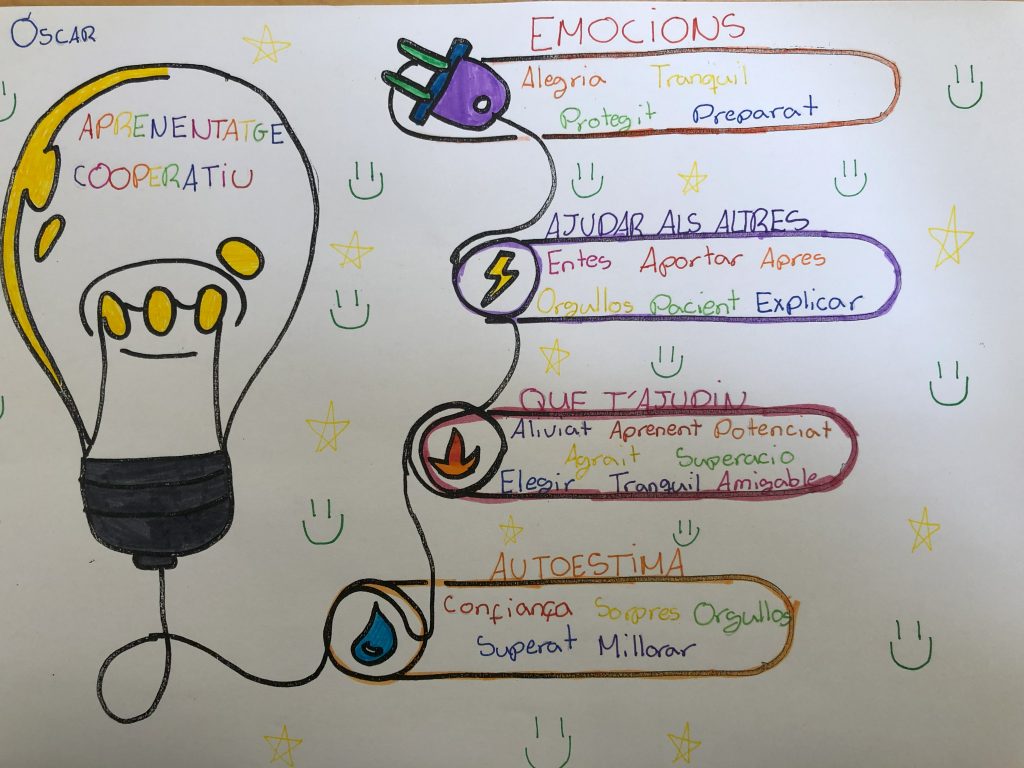 Óscar
APRENENTATGE
COOPERATIU
EMOCIONS
Alegria Tranquil
Protegit Preparat
AJUDAR ALS ALTRES
Entes Aportar Apres
Orgullos Pacient Explicar
QUE T'AJUDIN
Aliviat Aprenent Potenciat
Agrait Superacio
Elegir Tranquil Amigable
AUTOESTIMA
Confiança Sorpres Orgullos
Superat Millorar